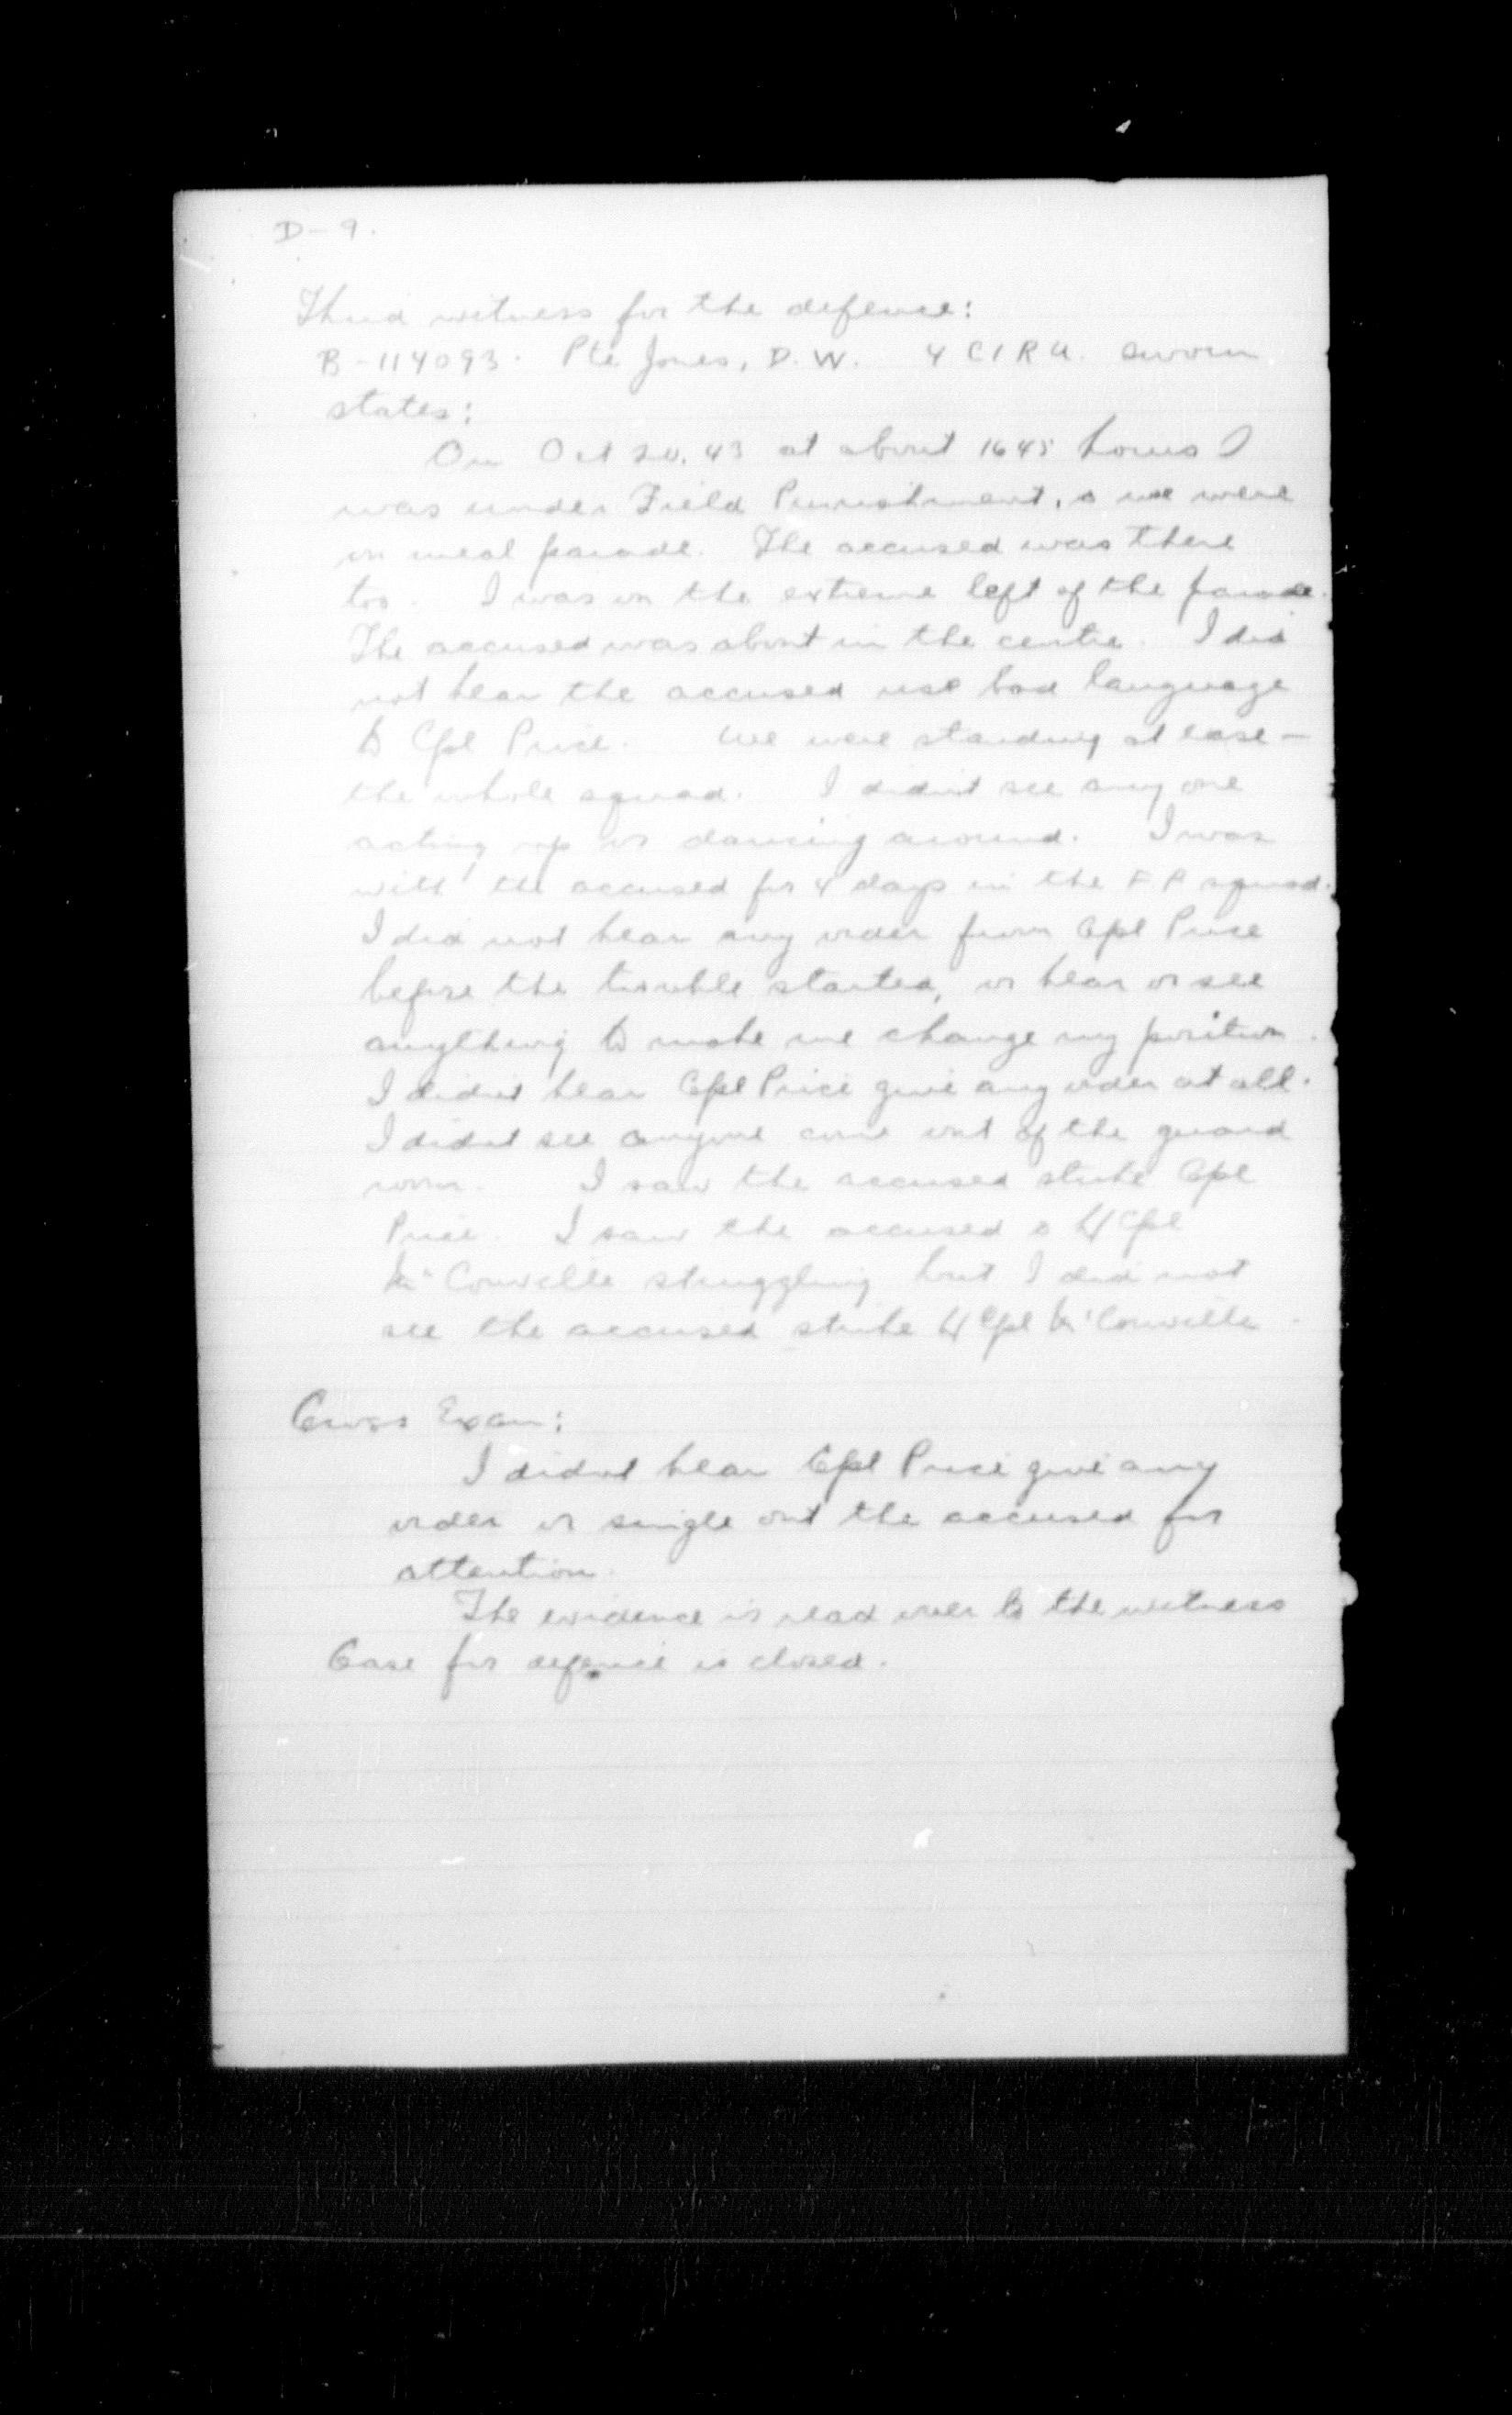 D-9.
Third witness for the defence:
B-114093. Pte Jones, D.W. 4 CIRU. sworn
states:
On Oct 20. 43 at about 1645 hours I
was under Field Punishment, & we were
on meal parade. The accused was there
too. I was on the extreme left of the parade.
The accused was about in the centre. I did
not hear the accused use bad language
to Cpl Price. We were standing at ease -
the whole squad. I didn't see any one
acting up or dancing around. I was
with the accused for 4 days in the F P squad.
I did not hear any order from Cpl Price
before the trouble started, or hear or see
anything to make me change my position.
I didn't hear Cpl Price give any order at all.
I didnt see anyone come out of the guard
room. I saw the accused strike Cpl
Price. I saw the accused & L/Cpl
McConville struggling but I did not
see the accused strike L/Cpl McConville.
Cross Exam:
I didnt hear Cpl Price give any
order or single out the accused for
attention.
The evidence is read over to the witness
Case for defence is closed.